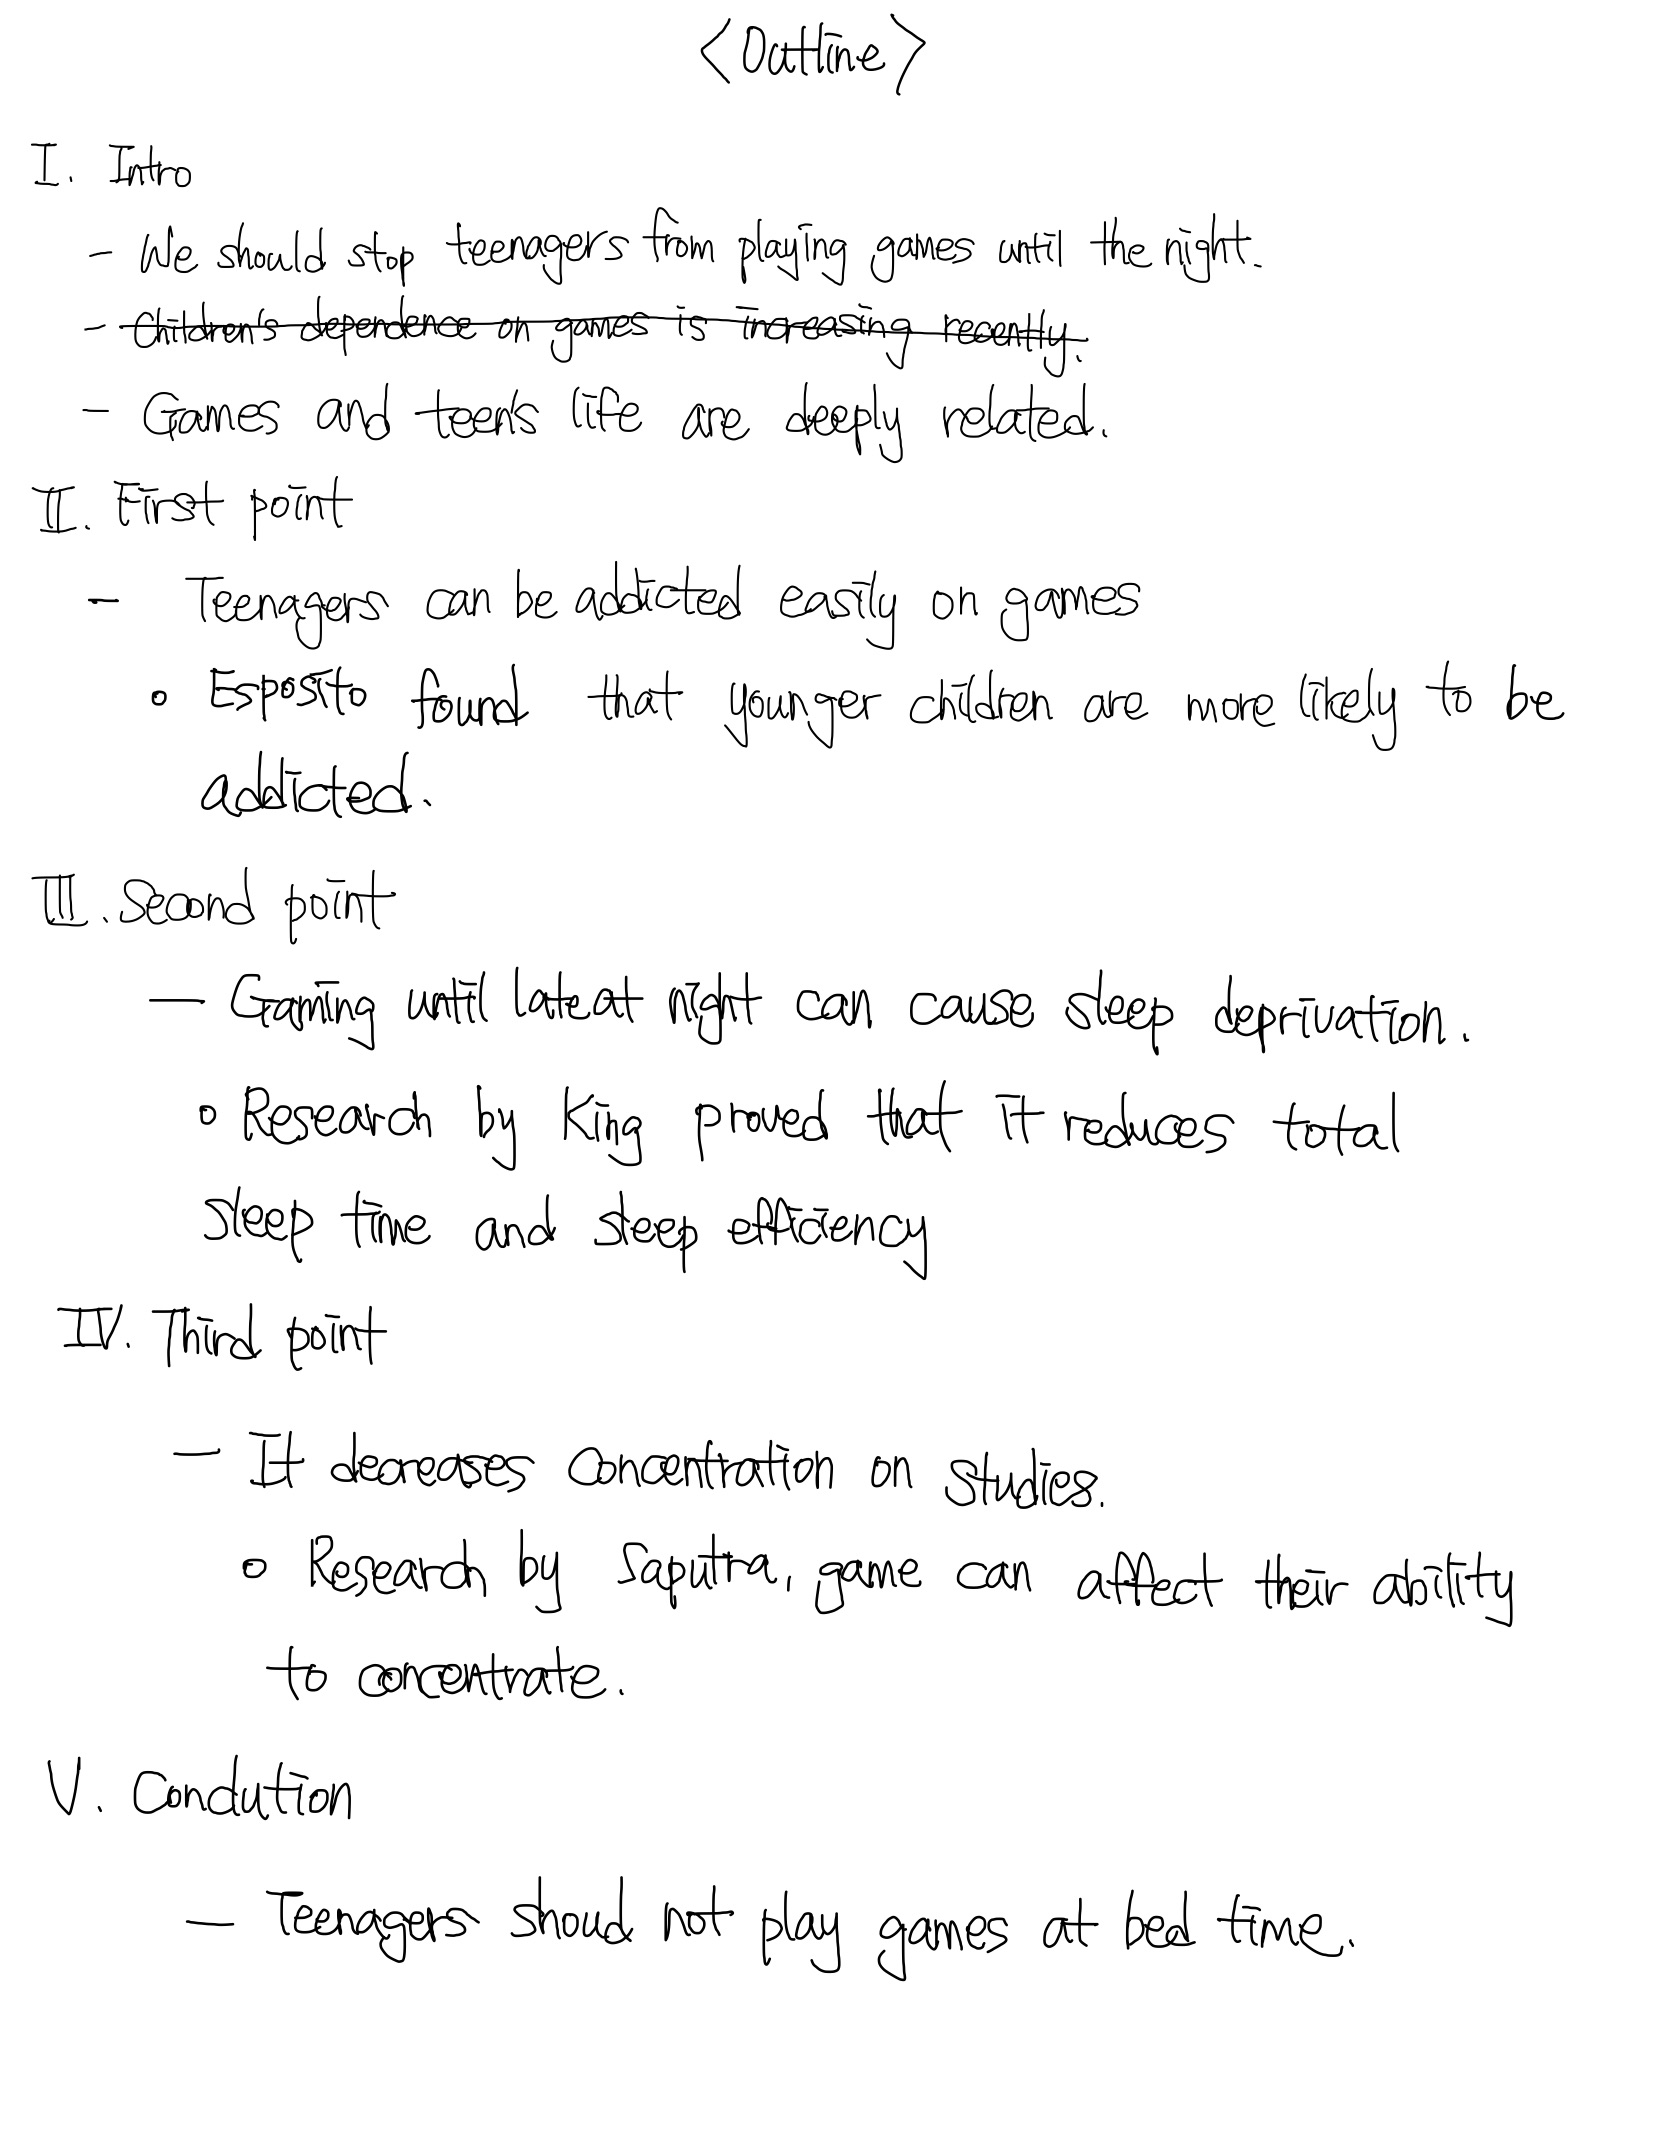 <Outline>
I. Intro
- We should stop teenagers from playing games until the night.
- Children's dependence on games is increasing recently.
- Games and teen's life are deeply related.
II. First point
- Teenagers can be addicted easily on games
∘ Esposito found that younger children are more likely to be
addicted.
III. Second point
- Gaming until late at night can cause sleep deprivation.
∘ Research by King proved that it reduces total
sleep time and sleep efficiency
IV. Third point
- It decreases concentration on studies.
∘ Research by Saputra, game can affect their ability
to concentrate.
V. Conclution
- Teenagers shoud not play games at bed time.